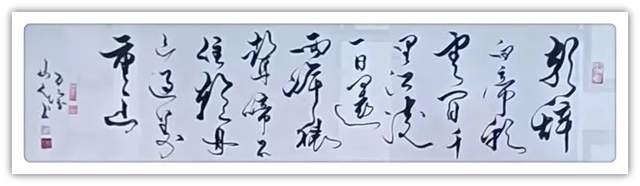 朝辭
白帝彩
雲間千
里江陵
一日還
兩岸猿
聲啼不
住輕舟
已過萬
重山